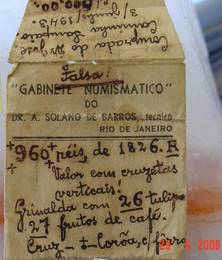 Comprada de Dr José
3/junho/1943
Falsa!
"GABINETE NUMISMATICO"
DO
DR. A. SOLANO DE BARROS, tecnico
RIO DE JANEIRO
+960+réis, de 1826. R
+Valor com cruzetas
verticais!
Grinalda com 26 tulipas
27 frutos de café.
Cruz - t - Corôa, c/ fôrro
2006